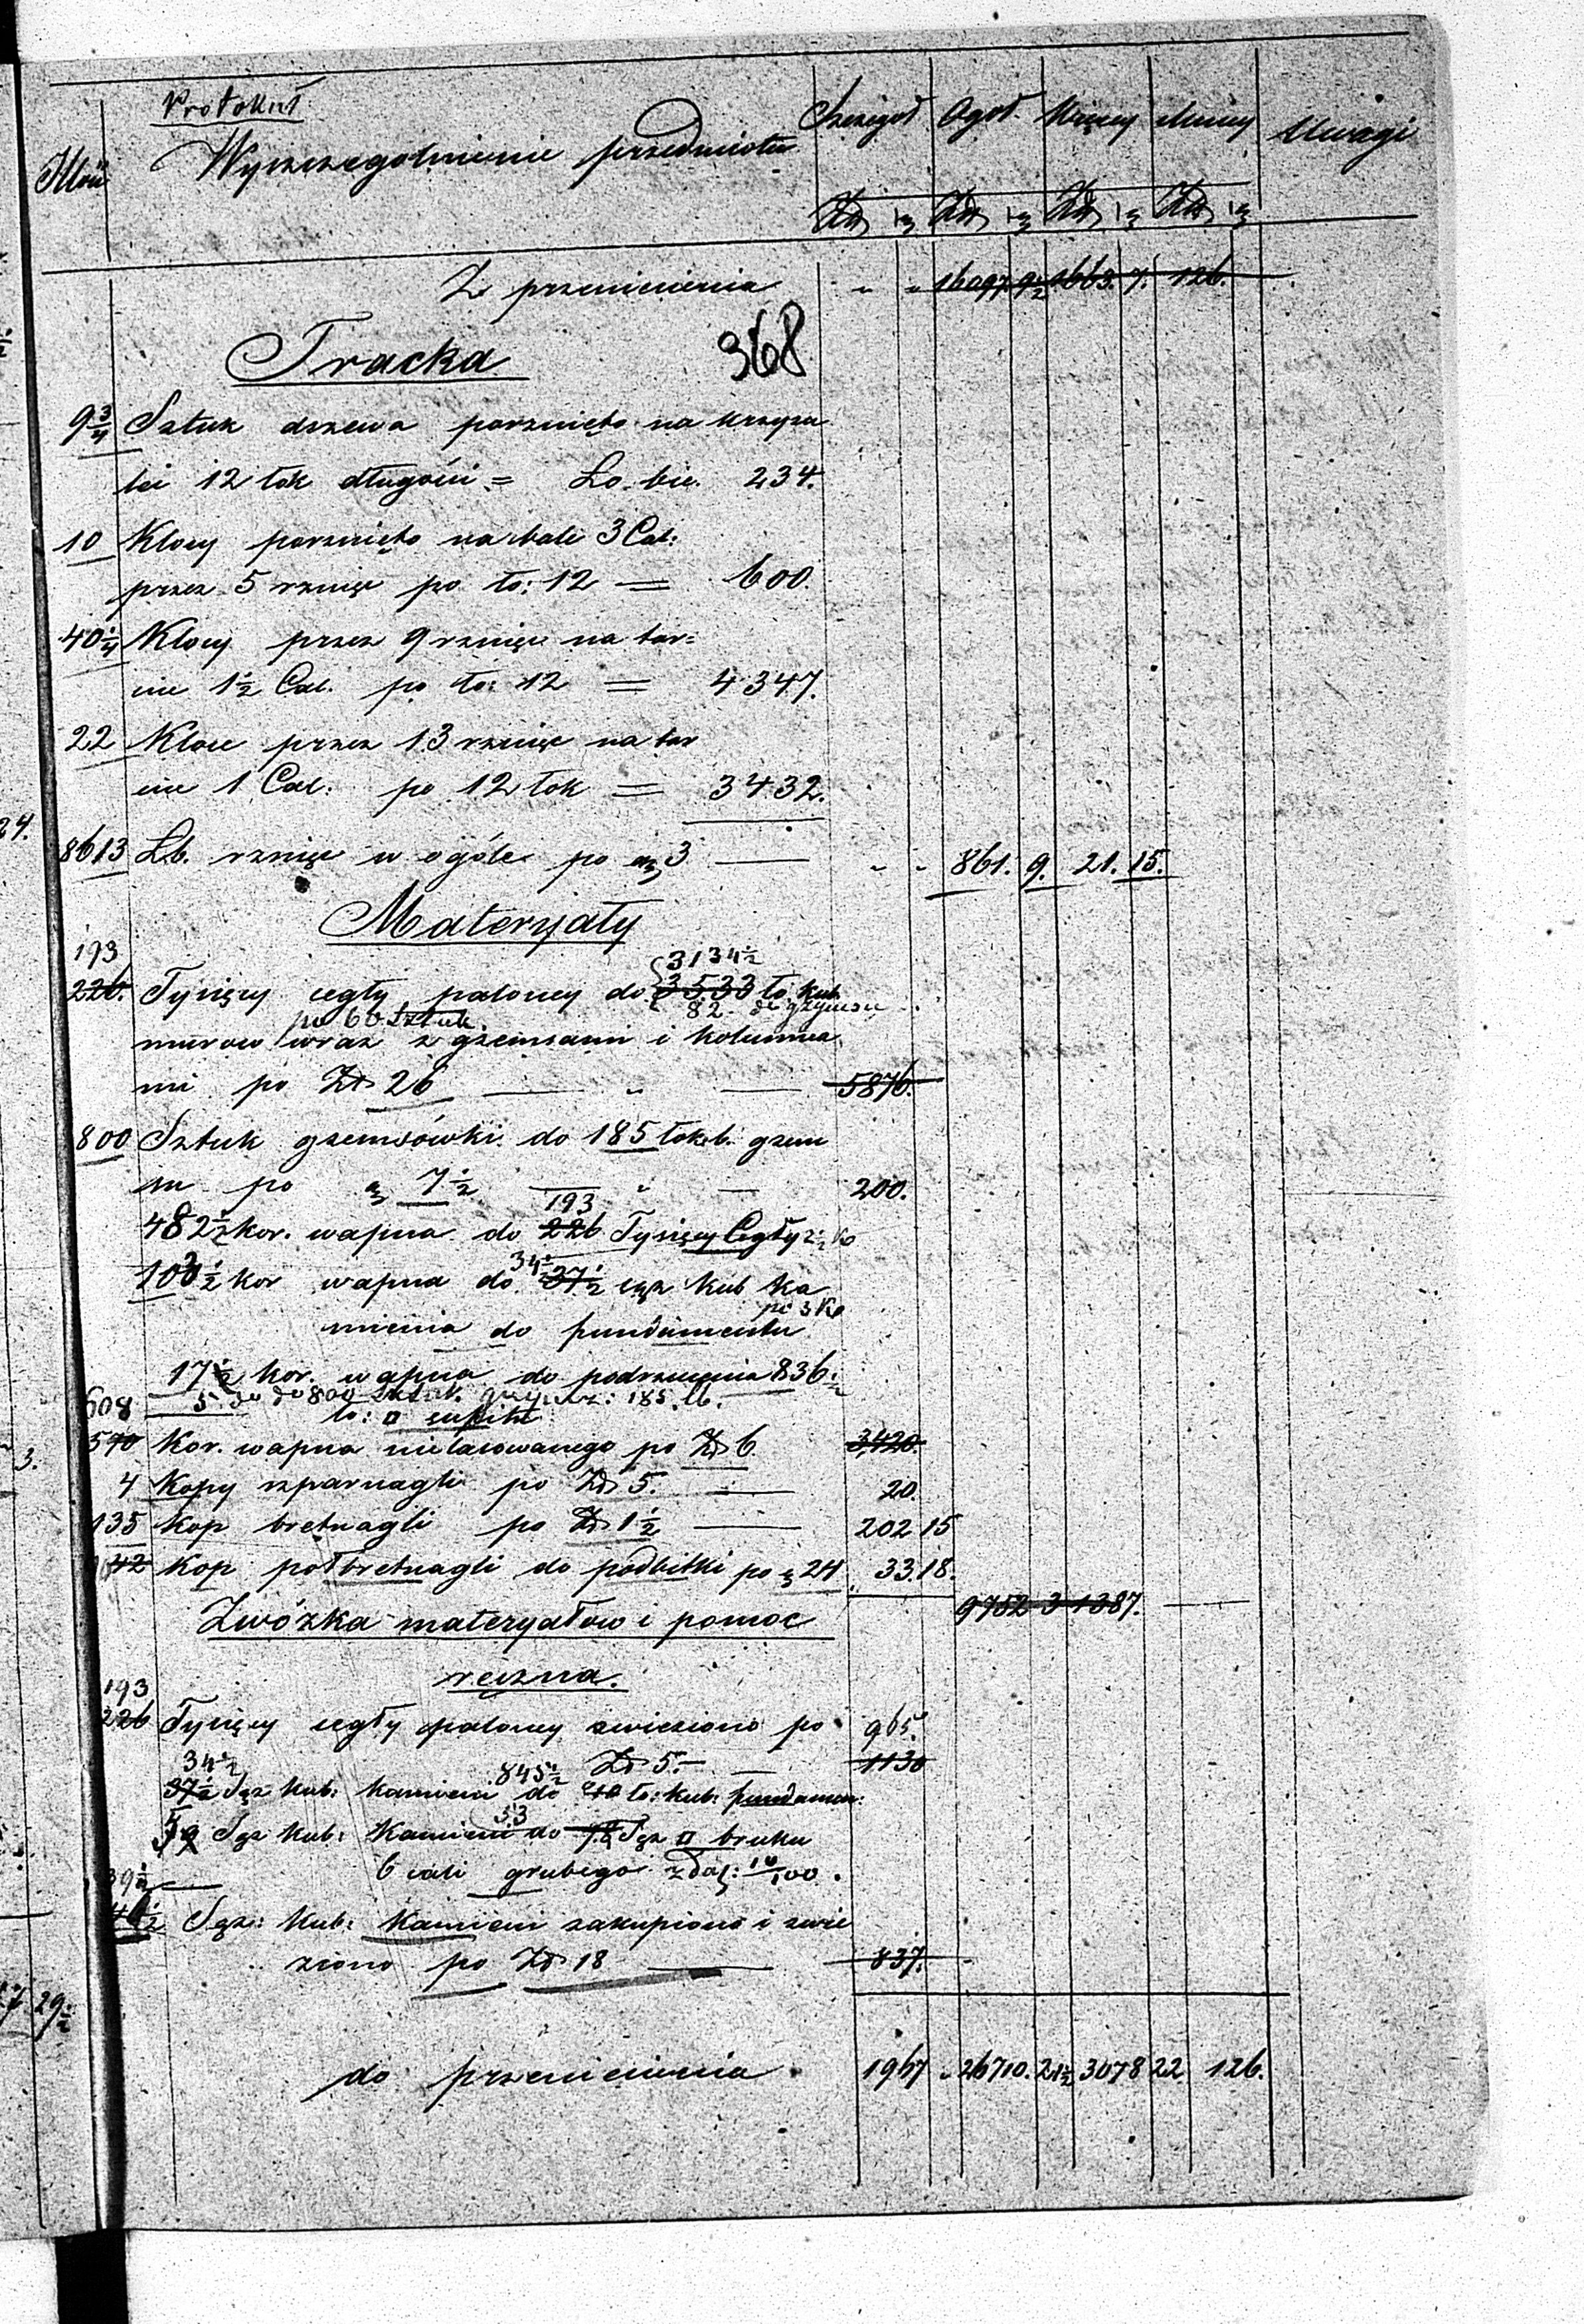 Protokuł
Ilość Wyszczegolnienie przedmiotu Szczegół Ogół Więcey Mniey Uwagi
Zł gr Zł gr Zł gr Zł gr
Z przeniesienia " " 16097. 9½ 1663. 7. 126.
Tracka 368
9¾ Sztuk drzewa porznięto na krzyza
łok 12 łok długości = Ło. bie. 234.
10 Klocy porznięto na bale 3 Cal:
przez 5 rznięć po ło: 12 = 600.
40¼ Klocy przez 9 rznięć na tar=
cice 1½ Cal. po ło: 12 = 4347.
22 Kloce przez 13 rznięć na tar
cice 1 Cal. po 12 łok = 3432.
8613 Łb. rznięć w ogóle po gr 3 — " " 861. 9. 21. 15.
Materyały
193 3134½
226. Tysięcy cegły paloney do 3533 ło. kub.
po 60 sztuk 82 do gzymsu
murow wraz z gzemsami i kolumna
mi po Zł 26 — " — 5876.
800 Sztuk gzemsówki do 185 łok. b. gzem
su po gr 7½ — " — 200.
193
482½ kor. wapna do 226 Tysięcy Cegły 2½ ko
34½
103½ kor wapna do 37½ sąż kub ka
po 3 Ko
mienia do fundamentu
17½ kor. wapna do podrzucenia 836½
5. do do 800 sztuk. gzymsu: 185. łb.
608 ło: □ sufitu
570 Kor. wapna nielasowanego po Zł 6 3,420.
4 Kopy szparnagli po Zł 5. — 20.
135 Kop bretnagli po Zł 1½ — 202 15
42 Kop połbretnagli do podbitki po gr 24 33. 18.
9752 3 1387. —
Zwózka materyałow i pomoc
ręczna.
193
226 Tysięcy cegły paloney zwieziono po 965.
Zł 5. — 1130
34½ 845½
37½ Sąż kub: kamieni do ło: kub: fundamen:
53
5 Sąż kub: Kamieni do Sąż □ bruku
6 cali grubego
39½
46½ Sąż: Kub: Kamieni zakupiono i zwie
ziono po Zł 18 — 837.
do przeniesienia 1967 " 26710. 21½ 3078 22 126.